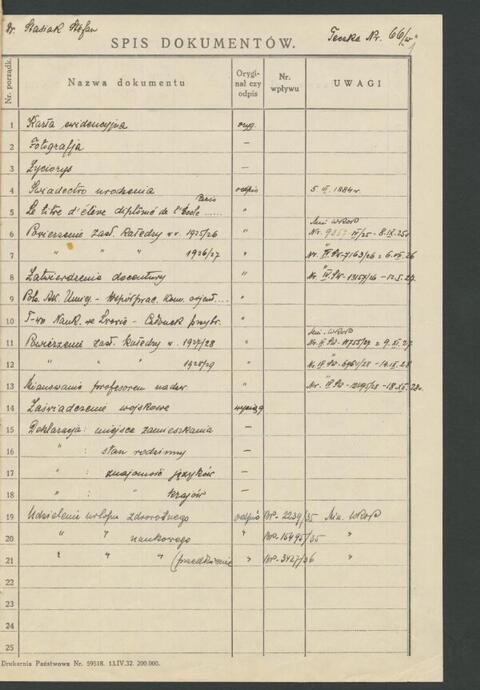 Dr. Stasiak Stefan
Teczka Nr. 66/w
SPIS DOKUMENTÓW.
Nr. porządk.
Nazwa dokumentu
Orygi-
nał czy
odpis
Nr.
wpływu
UWAGI
1 Karta ewidencyjna oryg.
2 Fotografja —
3 Życiorys —
4 Świadectwo urodzenia odpis 1884 r
5 Le titre d'élève diplômé de l'Ecole ..... Paris "
6 Powierzenie zast. Katedry w r. 1925/26 " Min. WRiOP Nr.
7 " " 1926/27 " Nr.
8 Zatwierdzenie docentury " Nr.
9 Pols. Ak. Umiej. - Współprac. Kom. orjent.... "
10 T-wo Nauk. we Lwowie - Członek przybr. "
11 Powierzenie zast. Katedry r. 1927/28 " Min. WRiOP
12 " " " 1928/29 "
13 Mianowanie profesorem nadzw. " Nr.
14 Zaświadczenie wojskowe wyciąg
15 Deklaracja: miejsce zamieszkania —
16 " : stan rodzinny —
17 " : znajomość języków —
18 " : " krajów —
19 Udzielenie urlopu zdrowotnego odpis BP-2239/35 Min. WRiOP
20 " " naukowego " BP-15495/35 "
21 " " (przedłużenie " BP-3427/36 "
22
23
24
25
Drukarnia Państwowa Nr. 59518. 13.IV.32. 200.000.